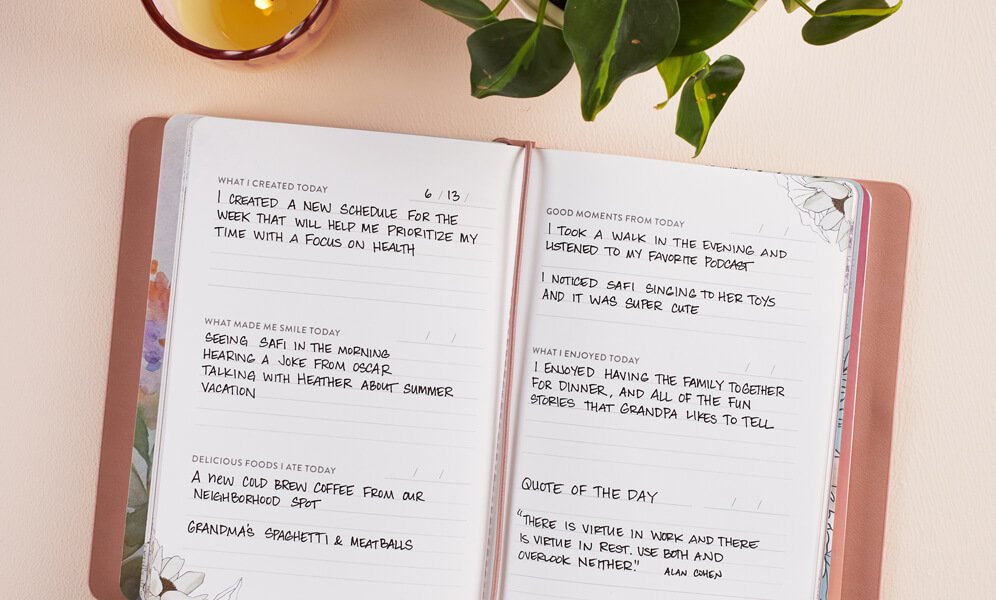 WHAT I CREATED TODAY
6 / 13 /
I CREATED A NEW SCHEDULE FOR THE
WEEK THAT WILL HELP ME PRIORITIZE MY
TIME WITH A FOCUS ON HEALTH
WHAT MADE ME SMILE TODAY
/ /
SEEING SAFI IN THE MORNING
HEARING A JOKE FROM OSCAR
TALKING WITH HEATHER ABOUT SUMMER
VACATION
DELICIOUS FOODS I ATE TODAY
/ /
A new COLD BREW COFFEE FROM OUR
NEIGHBORHOOD SPOT
GRANDMA'S SPAGHETTI & MEATBALLS
GOOD MOMENTS FROM TODAY
/ /
I TOOK A WALK IN THE EVENING AND
LISTENED TO MY FAVORITE PODCAST
I NOTICED SAFI SINGING TO HER TOYS
AND IT WAS SUPER CUTE
WHAT I ENJOYED TODAY
/ /
I ENJOYED HAVING THE FAMILY TOGETHER
FOR DINNER, AND ALL OF THE FUN
STORIES THAT GRANDPA LIKES TO TELL
QUOTE OF THE DAY
/ /
"THERE IS VIRTUE IN WORK AND THERE
IS VIRTUE IN REST. USE BOTH AND
OVERLOOK NEITHER." ALAN COHEN